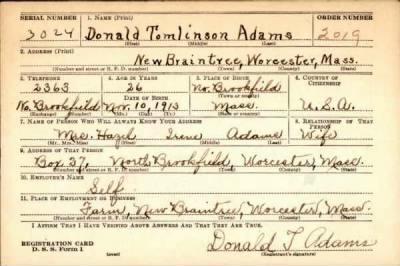 SERIAL NUMBER 1. NAME (Print) ORDER NUMBER
3024 Donald Tomlinson Adams 2019
(First) (Middle) (Last)
2. ADDRESS (Print)
New Braintree, Worcester, Mass.
(Number and street or R. F. D. number) (Town) (County) (State)
3. TELEPHONE 4. AGE IN YEARS 5. PLACE OF BIRTH 6. COUNTRY OF CITIZENSHIP
2363 26 No. Brookfield
DATE OF BIRTH
No. Brookfield Nov. 10, 1913 Mass. U.S.A.
7. NAME OF PERSON WHO WILL ALWAYS KNOW YOUR ADDRESS 8. RELATIONSHIP OF THAT PERSON
Mrs. Hazel Irene Adams Wife
(Mr., Mrs., Miss) (First) (Middle) (Last)
9. ADDRESS OF THAT PERSON
Box 37, North Brookfield, Worcester, Mass.
(Number and street or R. F. D. number) (Town) (County) (State)
10. EMPLOYER'S NAME
Self
11. PLACE OF EMPLOYMENT OR BUSINESS
Farm, New Braintree, Worcester, Mass.
(Number and street or R. F. D. number) (Town) (County) (State)
I AFFIRM THAT I HAVE VERIFIED ABOVE ANSWERS AND THAT THEY ARE TRUE.
REGISTRATION CARD
D. S. S. Form 1
(over)
Donald T Adams
(Registrant's signature)